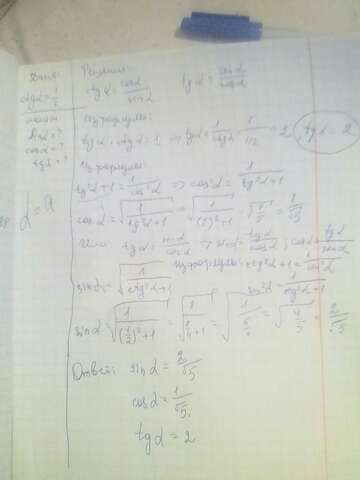 Дано:
ctgα = 1/2
Найти
sinα = ?
cosα = ?
tgα = ?
α = a
Решение:
ctgα = cosα/sinα tgα =
Из формулы:
tgα · ctgα = 1 ⇒ tgα = 1/ctgα = 1/1/2 = 2, tgα = 2
Из формулы:
tg²α+1 = 1/cos²α ⇒ cos²α = 1/tg²α+1
cosα = √1/tg²α+1 = √1/(2)²+1 = √1/5 = 1/√5
tgα = sinα/cosα ⇒ sinα = tgα/cosα ; cosα = tgα/sinα
Из формулы: ctg²α+1 = 1/sin²α
sinα = √1/ctg²α+1 sin²α = 1/ctg²α+1
sinα = √1/(1/2)²+1 = √1/1/4+1 = = √4/5 = 2/√5
Ответ: sinα = 2/√5
cosα = 1/√5
tgα = 2